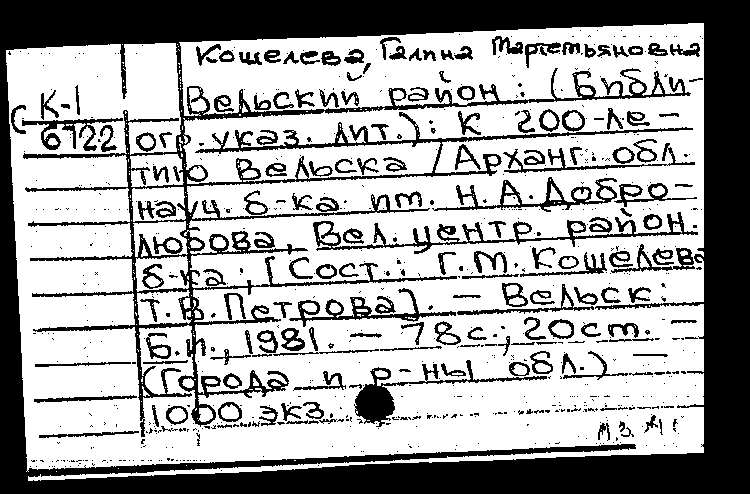 Кошелева, Галина Мартемьяновна
К-1 Вельский район: (Библи-
6722 огр. указ. лит.): К 200-ле-
тию Вельска / Арханг. обл.
науч. б-ка им. Н.А. Добро-
любова, Вел. центр. район.
б-ка; [Сост.: Г.М. Кошелева
Т.В. Петрова]. — Вельск:
Б.и., 1981. — 78с.; 20см. —
(Города и р-ны обл.) —
1000 экз.